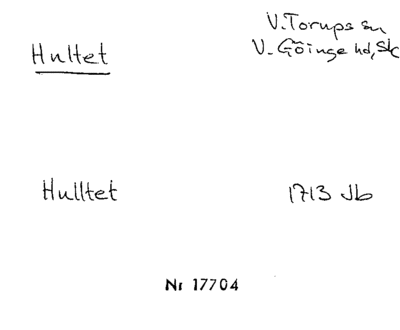 Hultet
V. Torups sn
V. Göinge hd, Sk
Hulltet
1713 Jb
Nr 17704